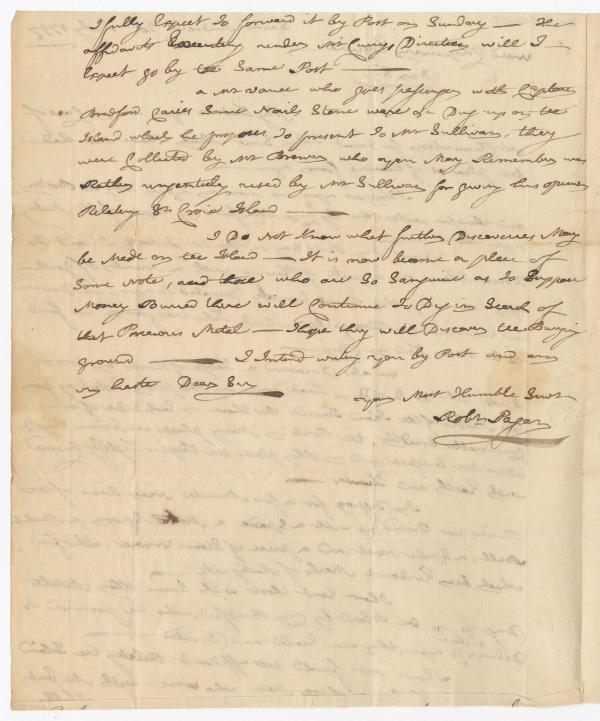 I fully Expect to forward it by Post on Sunday — The
affidavits Executed under Mr Currys Direction will I
Expect go by tee Same Post —
a Mr Vance who goes passenger with Capten
Bradford Caries Some Nails Stone ware &a Dug up on tee
Island which he proposes to present to Mr Sullivan, they
were Collected by Mr Brewer who you May Remember was
Rather ungenteely used by Mr Sullivan for giving his opinion
Relative St Croix Island —
I Do Not Know what further Discoveries May
be Made on tee Island — It is now become a place of
Some Note, and those who are So Sanguine as to Suppose
Money Buried there will Continue to Dig in Search of
that Precious Metal — I hope they will Discover tee Burying
ground — I Intend writing you by Post and am
in haste Dear Sir
your Most Humble Servt
Robt Pagan